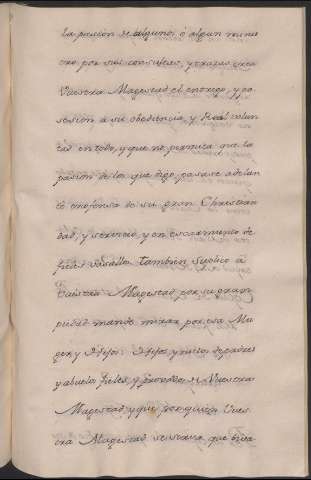 la pasion de algunos, ó algun minis
tro por sus consultas, y trazas, crea
Vuestra Magestad el entrego, y po
sesión á su obediencia, y Real volun
tad en todo, y que no permita que la
pasion de los que digo, pasase adelan
te en ofensa de su gran Christian
dad, y servicio, y en escarmiento de
fieles vasallos tambien suplico á
Vuestra Magestad por su gran
piedad mande mirar por esa Mu
ger, y Hijos: Hijos, y nietos de padres
y abuelos fieles, y de Vuestra
Magestad y que por quien Vues
tra Magestad se sirva que